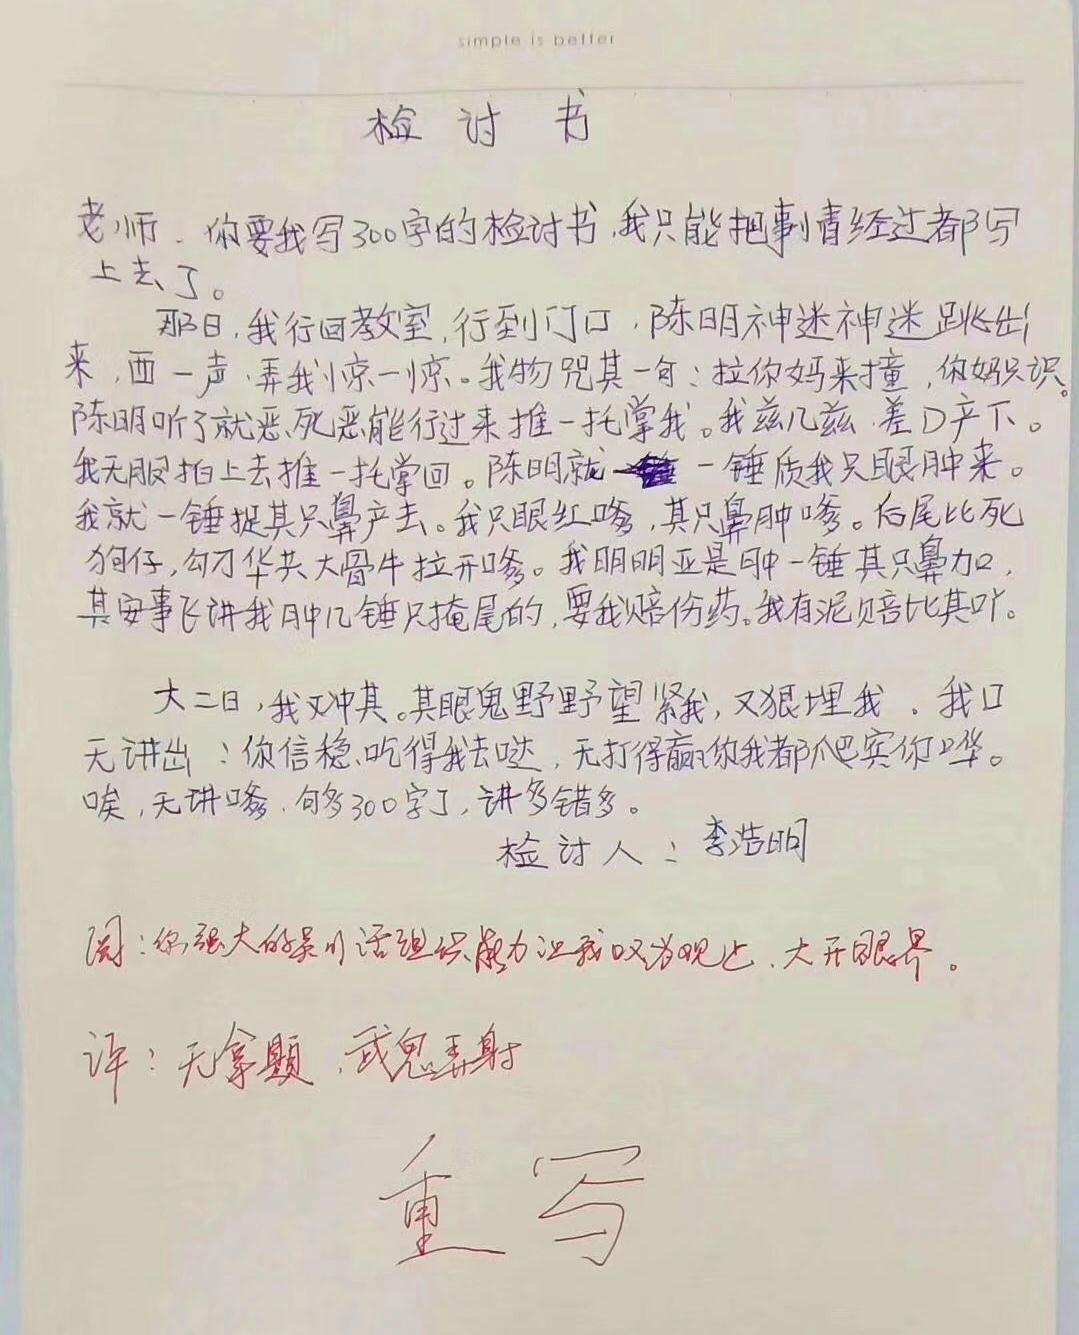 simple is better
检讨书
老师、你要我写300字的检讨书,我只能把事情经过都写
上去了。
那日,我行回教室,行到门口,陈明神迷神迷跳出
来,西一声,弄我惊一惊。我物咒其一句:拉你妈来撞,你妈只识。
陈明听了就恶、死恶能行过来推一托掌我。我兹几兹,差D产下。
我无服拍上去推一托掌回。陈明就一锤质我只眼肿来。
我就一锤捉其只鼻产去。我只眼红嗲,其只鼻肿嗲。后尾比死
狗仔,勾刁华共大骨牛拉开嗲。我明明亚是肿一锤其只鼻力口,
其安事飞讲我肿几锤只掩尾的,要我赔份药。我有泥赔比其吖。
大二日,我又冲其。其眼鬼野野望紧我,又狠埋我。我口
无讲出:你信稳、吃得我去哒,无打得赢你我都爬宾你卫华。
唉,无讲嗲,句多300字了,讲多错多。
检讨人:李浩明
阅:你强大的吴川话组织能力让我叹为观止、大开眼界。
评:无拿题,武鬼弄射
重写